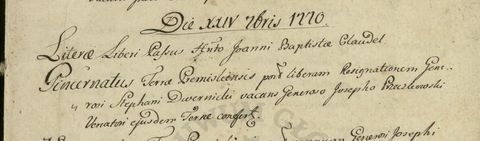 Die XXIV 7bris 1770.
Literæ Liberi Passus Anto Joanni Baptistæ Claudel
Pincernatus Terræ Premisliensis post liberam Resignationem Gene-
rosi Stephani Dwernicki vacans Generoso Josepho
Venatori ejusdem Terræ confert.
Generosi Josephi